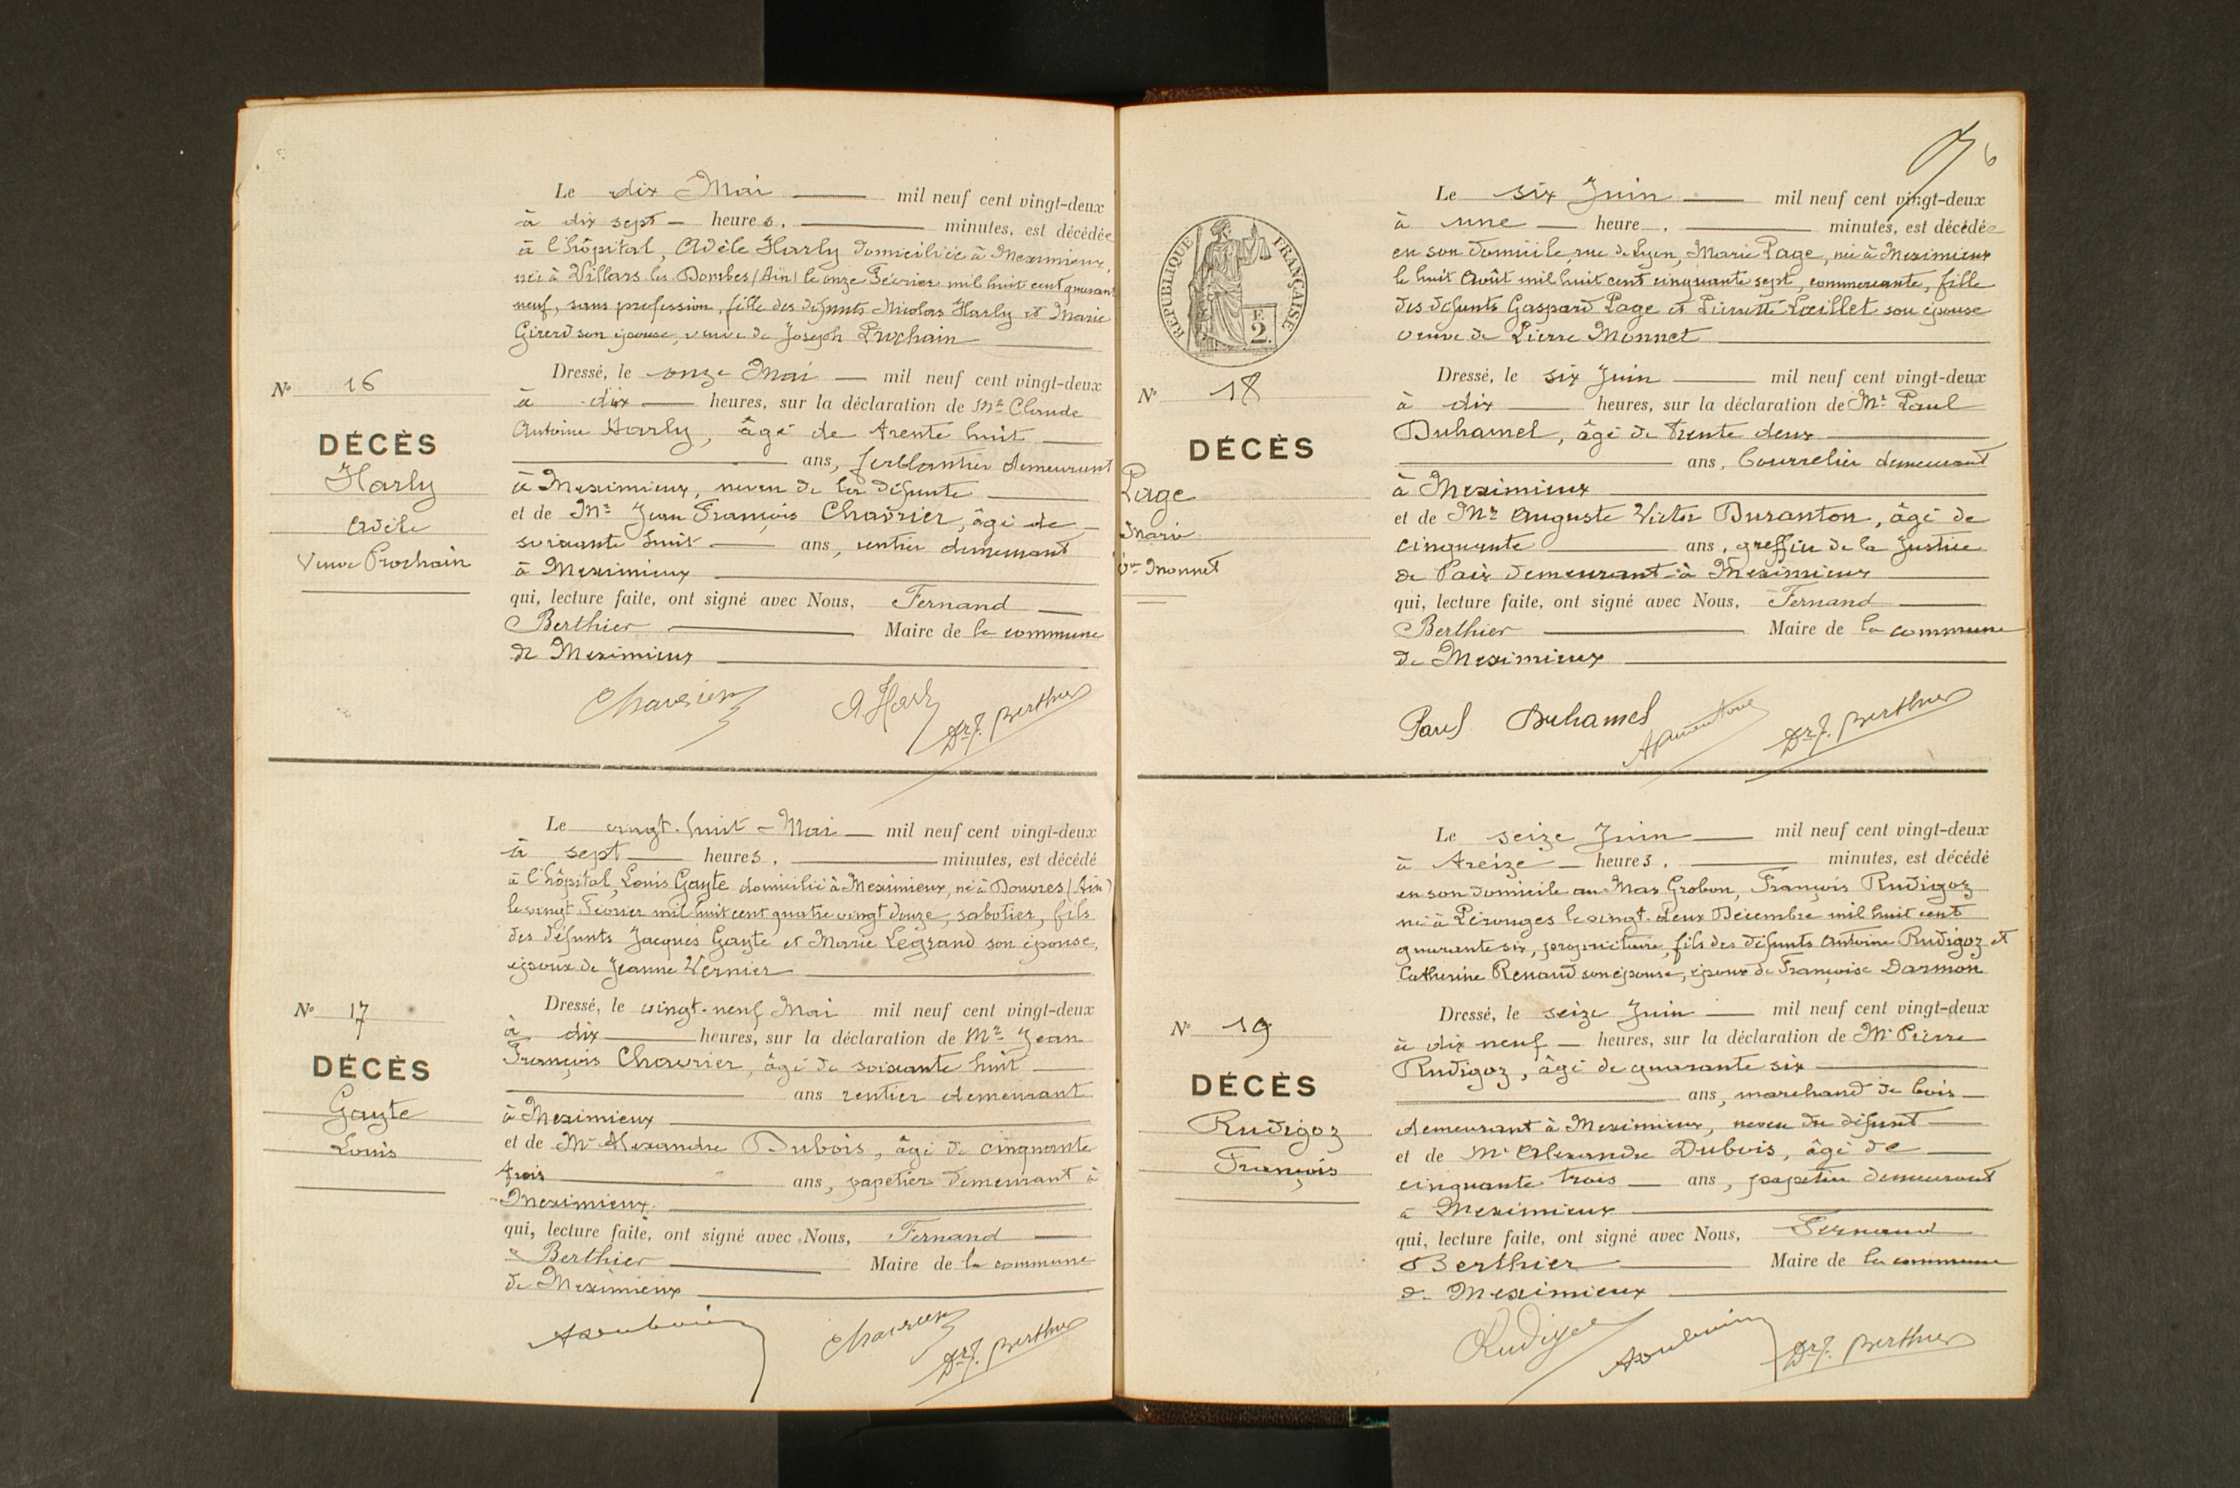 Le dix Mai mil neuf cent vingt-deux
à dix sept heures, minutes, est décédée
à l'hôpital, Adèle Harly domiciliée à Meximieux,
née à Villars les Dombes (Ain) le onze Février mil huit cent quarante
neuf, sans profession, fille des défunts Nicolas Harly et Marie
Girerd son épouse, veuve de Joseph Prochain
Dressé, le onze Mai mil neuf cent vingt-deux
à dix heures, sur la déclaration de Mr Claude
Antoine Harly, âgé de trente huit
ans, ferblantier demeurant
à Meximieux, neveu de la défunte
et de Mr Jean François Chavrier, âgé de
soixante huit ans, rentier demeurant
à Meximieux
qui, lecture faite, ont signé avec Nous, Fernand
Berthier Maire de la commune
de Meximieux
Chavrier A Harly Dr F. Berthier
No 16
DÉCÈS
Harly
Adèle
Veuve Prochain
Le vingt-huit Mai mil neuf cent vingt-deux
à sept heures, minutes, est décédé
à l'hôpital, Louis Gayte domicilié à Meximieux, né à Douvres (Ain)
le vingt Février mil huit cent quatre vingt douze, sabotier, fils
des défunts Jacques Gayte et Marie Legrand son épouse,
époux de Jeanne Vernier
Dressé, le vingt-neuf Mai mil neuf cent vingt-deux
à dix heures, sur la déclaration de Mr Jean
François Chavrier, âgé de soixante huit
ans rentier demeurant
à Meximieux
et de Mr Alexandre Dubois, âgé de cinquante
trois ans, papetier demeurant à
Meximieux
qui, lecture faite, ont signé avec Nous, Fernand
Berthier Maire de la commune
de Meximieux
Chavrier Dr F. Berthier
No 17
DÉCÈS
Gayte
Louis
6
RÉPUBLIQUE FRANÇAISE
F.
2.
Le six Juin mil neuf cent vingt-deux
à une heure, minutes, est décédée
en son domicile, rue de Lyon, Marie Page, née à Meximieux
le huit Août mil huit cent cinquante sept, commerçante, fille
des défunts Gaspard Page et Pierrette Lœillet son épouse
veuve de Pierre Monnet
Dressé, le six Juin mil neuf cent vingt-deux
à dix heures, sur la déclaration de Mr Paul
Duhamel, âgé de trente deux
ans, bourrelier demeurant
à Meximieux
et de Mr Auguste Victor Duranton, âgé de
cinquante ans, greffier de la Justice
de Paix demeurant à Meximieux
qui, lecture faite, ont signé avec Nous, Fernand
Berthier Maire de la commune
de Meximieux
Paul Duhamel Dr F. Berthier
No 18
DÉCÈS
Page
Marie
Ve Monnet
Le seize Juin mil neuf cent vingt-deux
à treize heures, minutes, est décédé
en son domicile au Mas Grobon, François Rudigoz
né à Pérouges le vingt-deux Décembre mil huit cent
quarante six, propriétaire, fils des défunts Antoine Rudigoz et
Catherine Renaud son épouse, époux de Françoise Darmon
Dressé, le seize Juin mil neuf cent vingt-deux
à dix neuf heures, sur la déclaration de Mr Pierre
Rudigoz, âgé de quarante six
ans, marchand de bois
demeurant à Meximieux, neveu du défunt
et de Mr Alexandre Dubois, âgé de
cinquante trois ans, papetier demeurant
à Meximieux
qui, lecture faite, ont signé avec Nous, Fernand
Berthier Maire de la commune
de Meximieux
Rudigoz Dr F. Berthier
No 19
DÉCÈS
Rudigoz
François